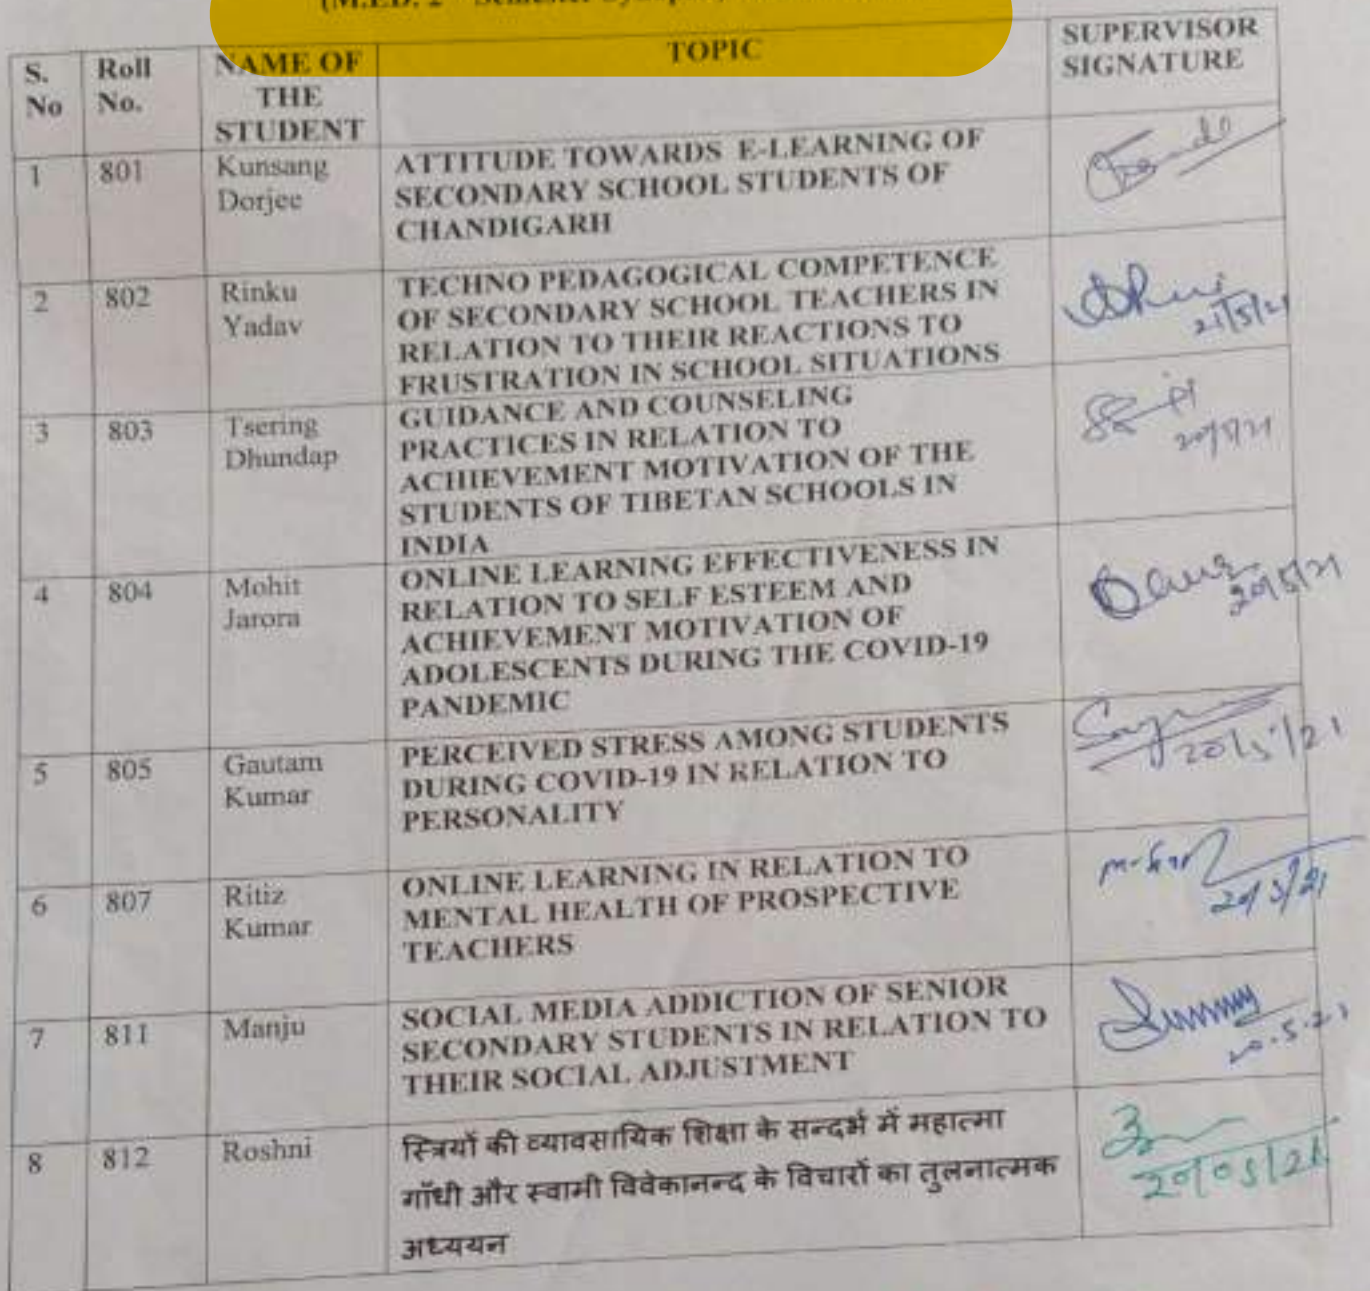 (M.ED. 2
Semester
S. No
Roll No.
NAME OF THE STUDENT
TOPIC
SUPERVISOR SIGNATURE
1
801
Kunsang
Dorjee
ATTITUDE TOWARDS E-LEARNING OF
SECONDARY SCHOOL STUDENTS OF
CHANDIGARH
2
802
Rinku
Yadav
TECHNO PEDAGOGICAL COMPETENCE
OF SECONDARY SCHOOL TEACHERS IN
RELATION TO THEIR REACTIONS TO
FRUSTRATION IN SCHOOL SITUATIONS
21/5/21
3
803
Tsering
Dhundap
GUIDANCE AND COUNSELING
PRACTICES IN RELATION TO
ACHIEVEMENT MOTIVATION OF THE
STUDENTS OF TIBETAN SCHOOLS IN
INDIA
20/5/21
4
804
Mohit
Jarora
ONLINE LEARNING EFFECTIVENESS IN
RELATION TO SELF ESTEEM AND
ACHIEVEMENT MOTIVATION OF
ADOLESCENTS DURING THE COVID-19
PANDEMIC
20/5/21
5
805
Gautam
Kumar
PERCEIVED STRESS AMONG STUDENTS
DURING COVID-19 IN RELATION TO
PERSONALITY
20/5/21
6
807
Ritiz
Kumar
ONLINE LEARNING IN RELATION TO
MENTAL HEALTH OF PROSPECTIVE
TEACHERS
20/5/21
7
811
Manju
SOCIAL MEDIA ADDICTION OF SENIOR
SECONDARY STUDENTS IN RELATION TO
THEIR SOCIAL ADJUSTMENT
20.5.21
8
812
Roshni
स्त्रियों की व्यावसायिक शिक्षा के सन्दर्भ में महात्मा
गाँधी और स्वामी विवेकानन्द के विचारों का तुलनात्मक
अध्ययन
20/05/21